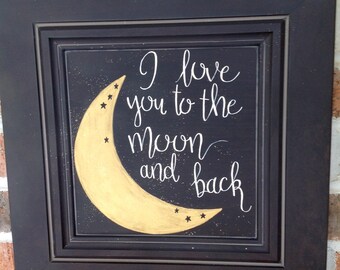 I love
you to the
moon
and back